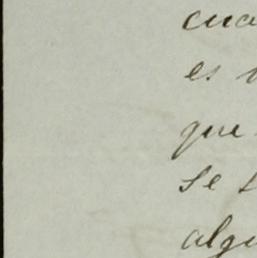 cua
es
que
se
algu